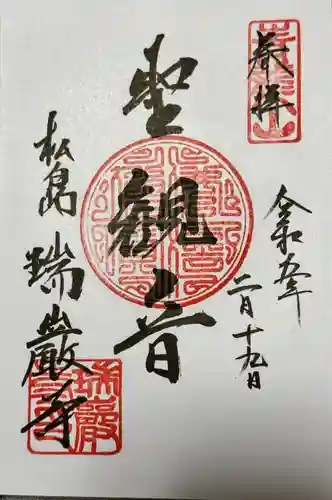 奉拝
令和五年
二月十九日
聖観音
松島 瑞巌寺